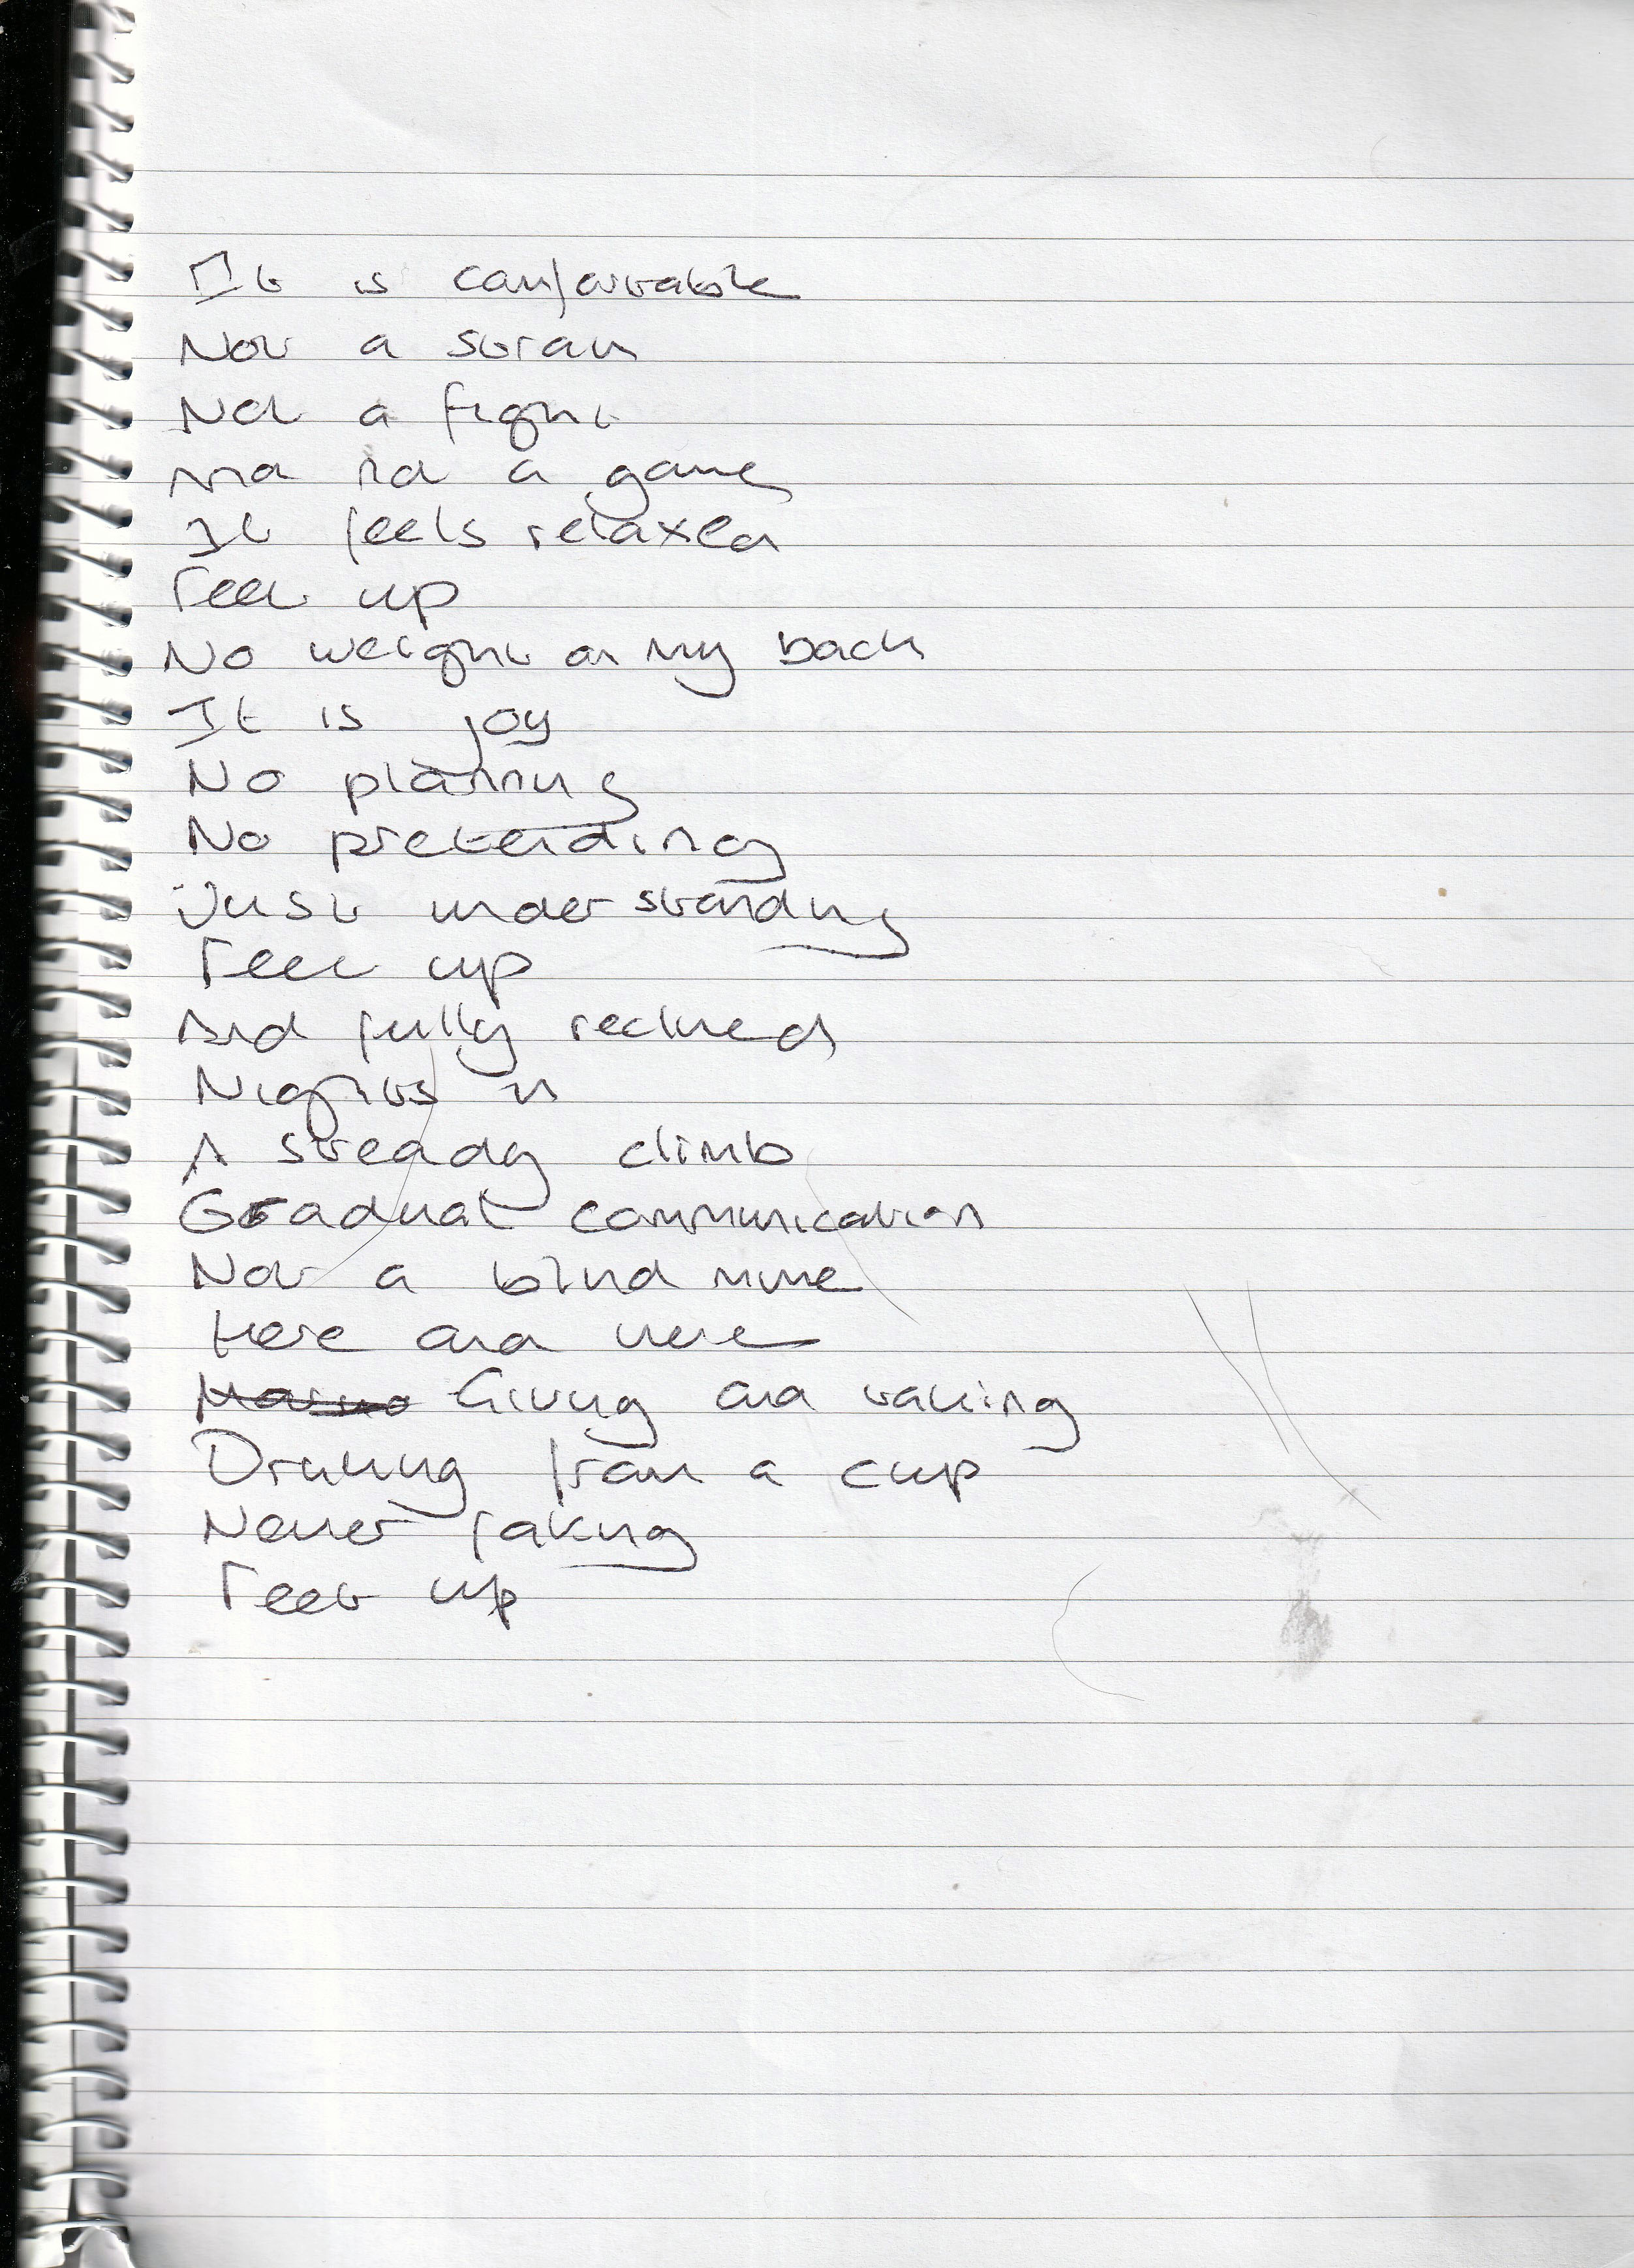 It is comfortable
Not a strain
Not a fight
And not a game
It feels relaxed
Feet up
No weight on my back
It is joy
No planning
No pretending
Just understanding
Feet up
And fully reclined
Nights in
A steady climb
Gradual communication
Not a blind mime
Here and here
Giving and taking
Drinking from a cup
Never faking
Feet up